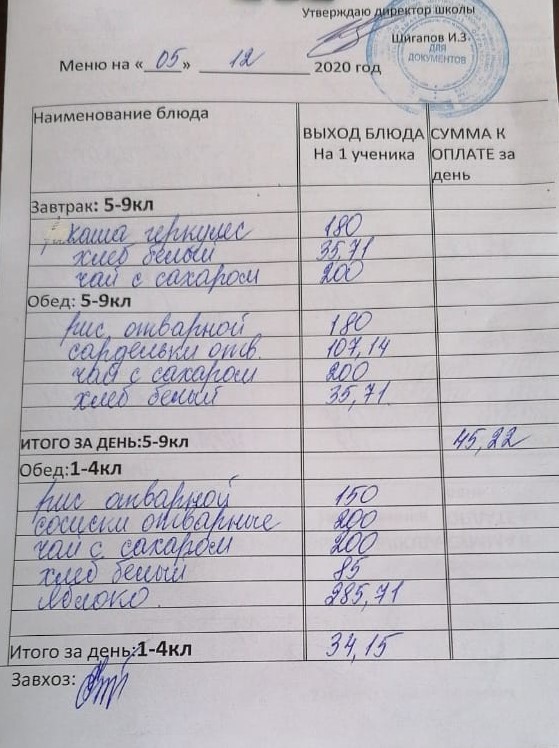 Утверждаю директор школы
Шигапов И.З.
ДЛЯ
ДОКУМЕНТОВ
Меню на «05» 12 2020 год
Наименование блюда
ВЫХОД БЛЮДА
На 1 ученика
СУММА К
ОПЛАТЕ за
день
Завтрак: 5-9кл
каша геркулес 180
хлеб белый 35,71
чай с сахаром 200
Обед: 5-9кл
рис отварной 180
сардельки отв. 107,14
чай с сахаром 200
хлеб белый 35,71
ИТОГО ЗА ДЕНЬ:5-9кл 45,22
Обед:1-4кл
рис отварной 150
сосиски отварные 200
чай с сахаром 200
хлеб белый 85
яблоко 285,71
Итого за день:1-4кл 34,15
Завхоз: